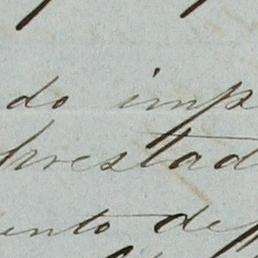 do imp
prestad
ento de